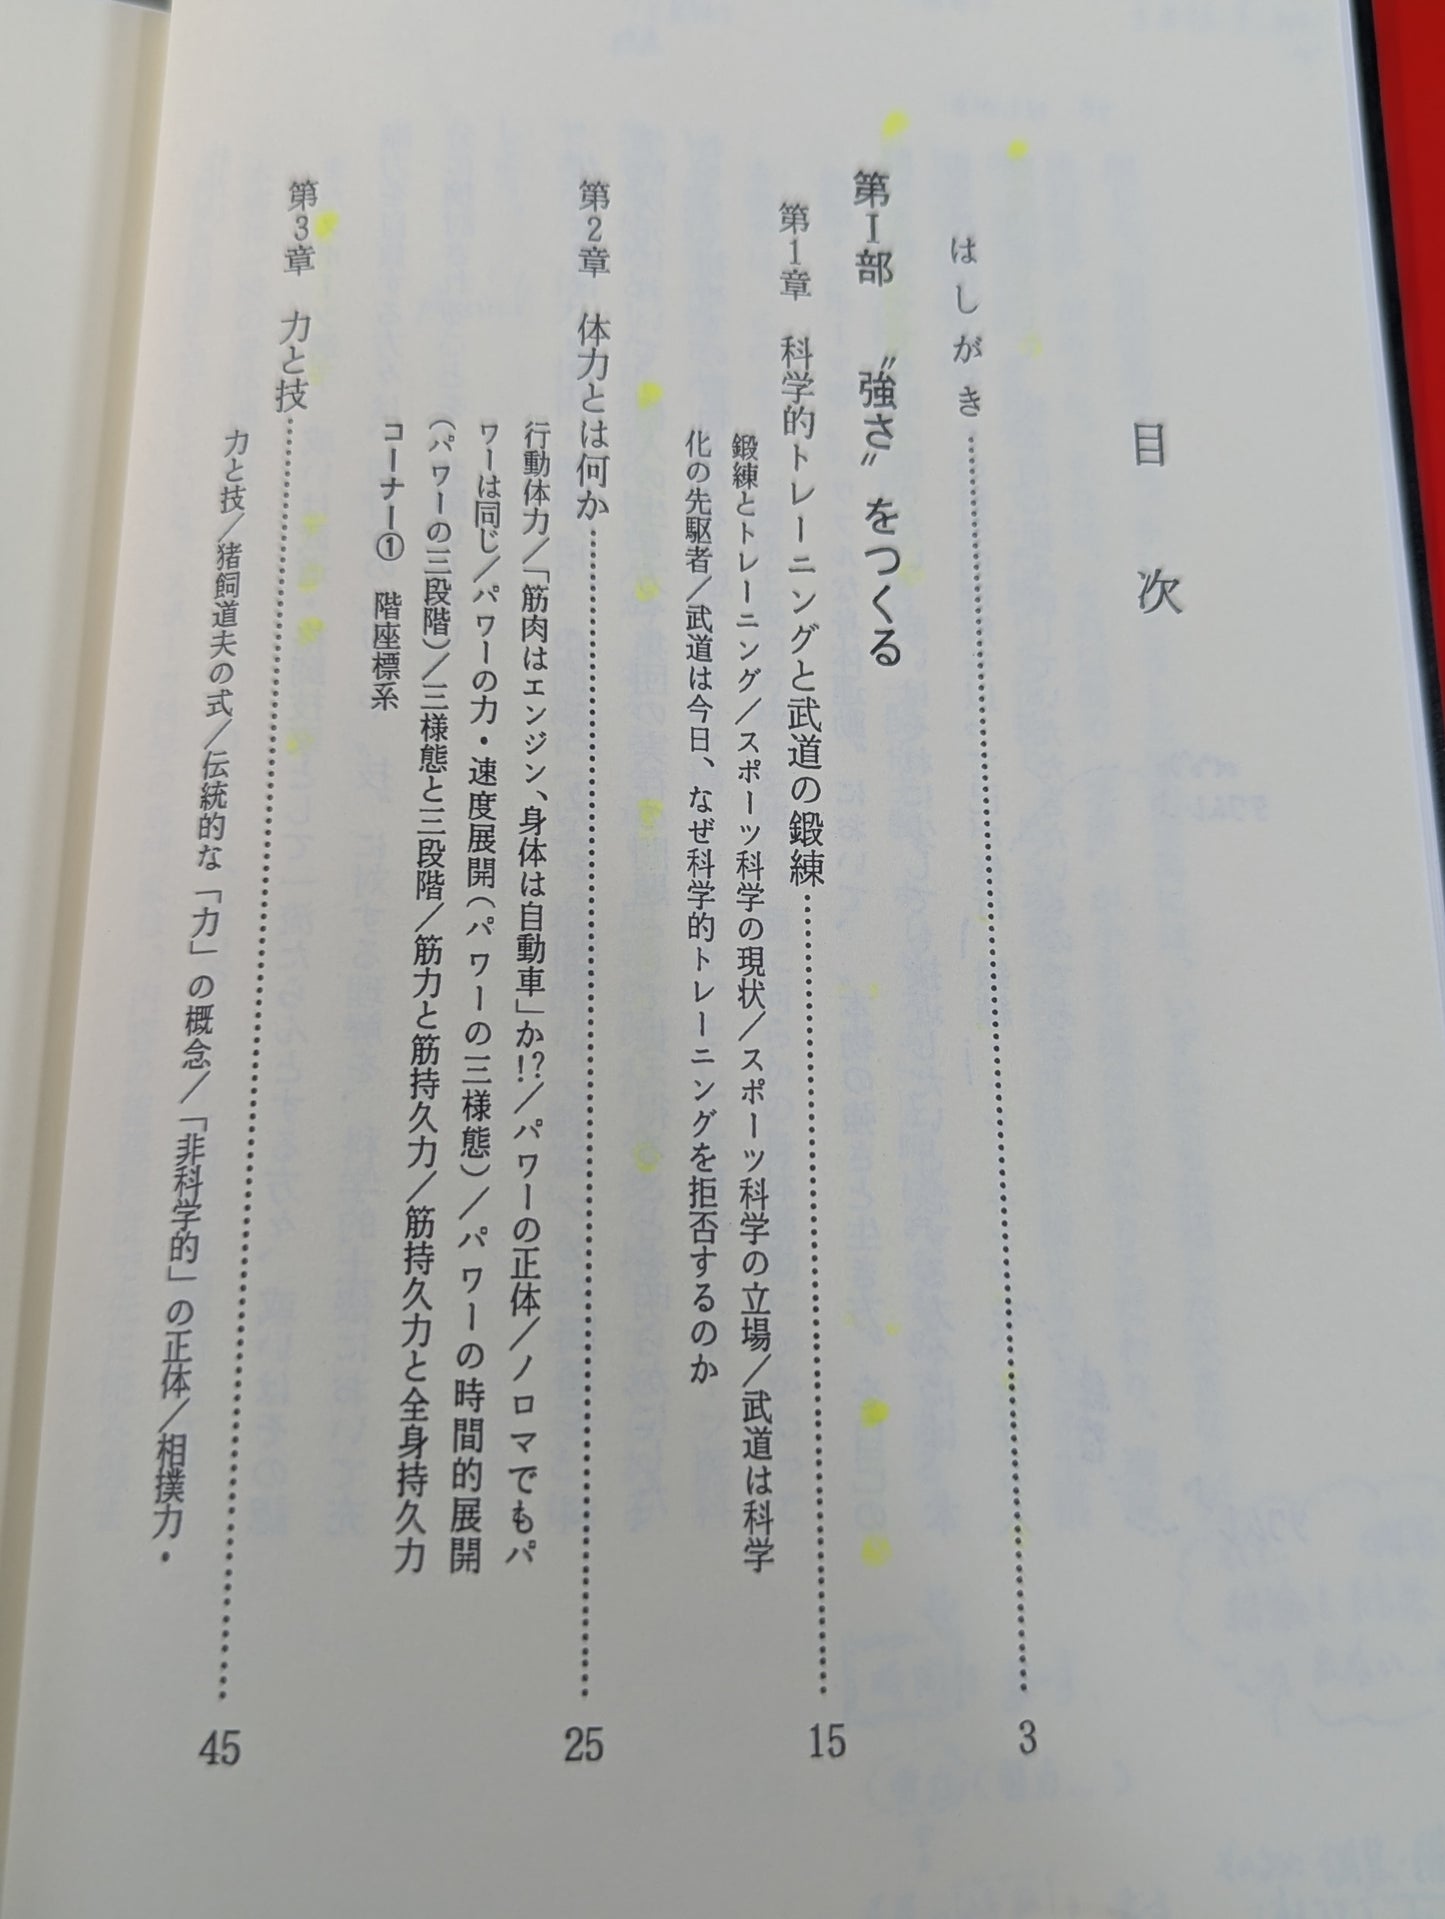 目次
はしがき……3
第Ⅰ部 〝強さ〟をつくる
第1章 科学的トレーニングと武道の鍛練……15
鍛練とトレーニング／スポーツ科学の現状／スポーツ科学の立場／武道は科学
化の先駆者／武道は今日、なぜ科学的トレーニングを拒否するのか
第2章 体力とは何か……25
行動体力／「筋肉はエンジン、身体は自動車」か!?／パワーの正体／ノロマでもパ
ワーは同じ／パワーの力・速度展開（パワーの三様態）／パワーの時間的展開
（パワーの三段階）／三様態と三段階／筋力と筋持久力／筋持久力と全身持久力
コーナー① 階座標系
第3章 力と技……45
力と技／猪飼道夫の式／伝統的な「力」の概念／「非科学的」の正体／相撲力・